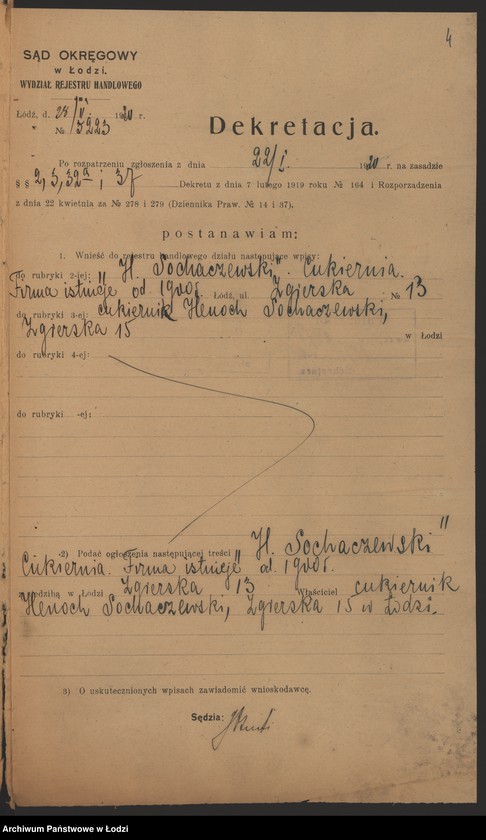 4
SĄD OKRĘGOWY
w Łodzi.
WYDZIAŁ REJESTRU HANDLOWEGO
Łódź, d. 28/V 1920 r.
" № 5223
Dekretacja.
Po rozpatrzeniu zgłoszenia z dnia 22/I. 1920 r. na zasadzie
§ § 2, 3, 32a i 37 Dekretu z dnia 7 lutego 1919 roku № 164 i Rozporządzenia
z dnia 22 kwietnia za № 278 i 279 (Dziennika Praw. № 14 i 37).
postanawiam:
1. Wnieść do rejestru handlowego działu następujące wpisy:
do rubryki 2-iej: "H. Sochaczewski". Cukiernia.
Firma istnieje od 1900r. Łódź, ul. Zgierska № 13
do rubryki 3-ej: cukiernik Henoch Sochaczewski,
Zgierska 15 w Łodzi
do rubryki 4-ej:
do rubryki -ej:
2) Podać ogłoszenia następującej treści "H. Sochaczewski"
Cukiernia. Firma istnieje od 1900r.
Siedziba w Łodzi Zgierska 13 Właściciel cukiernik
Henoch Sochaczewski, Zgierska 15 w Łodzi.
3) O uskutecznionych wpisach zawiadomić wnioskodawcę.
Sędzia:
Archiwum Państwowe w Łodzi